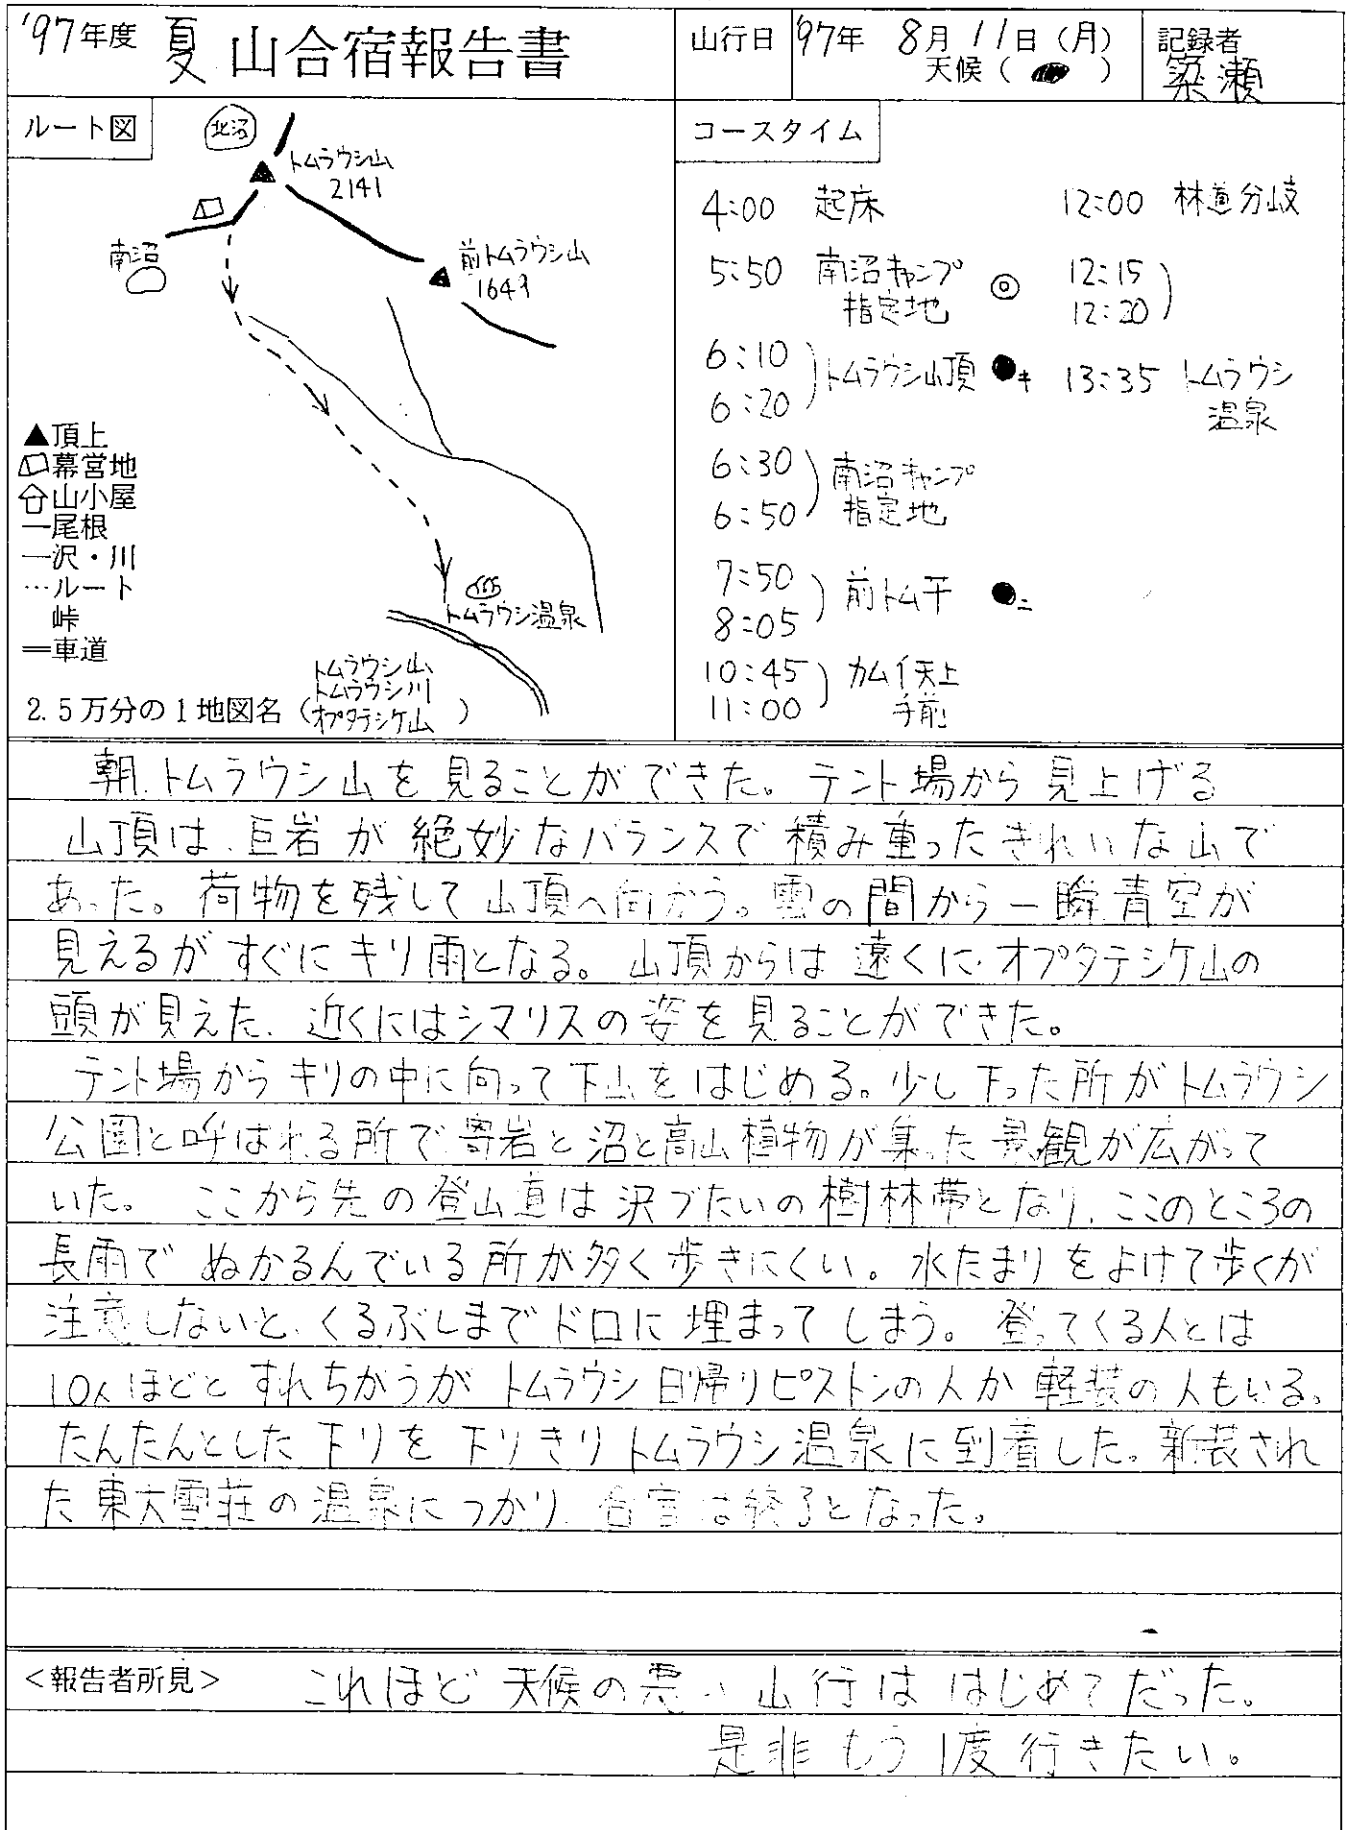 '97年度 夏山合宿報告書
山行日 '97年 8月11日(月)
天候( )
記録者
簗瀬
ルート図
北沼
トムラウシ山
2141
南沼
前トムラウシ山
1649
▲頂上
幕営地
山小屋
―尾根
―沢・川
…ルート
峠
＝車道
トムラウシ温泉
2.5万分の1地図名(トムラウシ山
トムラウシ川
オプタテシケ山)
コースタイム
4:00 起床
5:50 南沼キャンプ指定地 ◎
6:10
6:20 トムラウシ山頂 ●キ
6:30
6:50 南沼キャンプ指定地
7:50
8:05 前トム平 ●ニ
10:45
11:00 カムイ天上手前
12:00 林道分岐
12:15
12:20
13:35 トムラウシ温泉
朝、トムラウシ山を見ることができた。テント場から見上げる
山頂は、巨岩が絶妙なバランスで積み重ったきれいな山で
あった。荷物を残して山頂へ向かう。雲の間から一瞬青空が
見えるがすぐにキリ雨となる。山頂からは遠くに、オプタテシケ山の
頭が見えた、近くにはシマリスの姿を見ることができた。
テント場からキリの中に向って下山をはじめる。少し下った所がトムラウシ
公園と呼ばれる所で寄岩と沼と高山植物が集った景観が広がって
いた。ここから先の登山道は沢づたいの樹林帯となり、ここのところの
長雨でぬかるんでいる所が多く歩きにくい。水たまりをよけて歩くが
注意しないと、くるぶしまでドロに埋まってしまう。登ってくる人とは
10人ほどとすれちがうがトムラウシ日帰りピストンの人か軽装の人もいる。
たんたんとした下りを下りきりトムラウシ温泉に到着した。新装され
た東大雪荘の温泉につかり、合宿は終了となった。
＜報告者所見＞ これほど天候の悪い山行ははじめてだった。
是非もう1度行きたい。